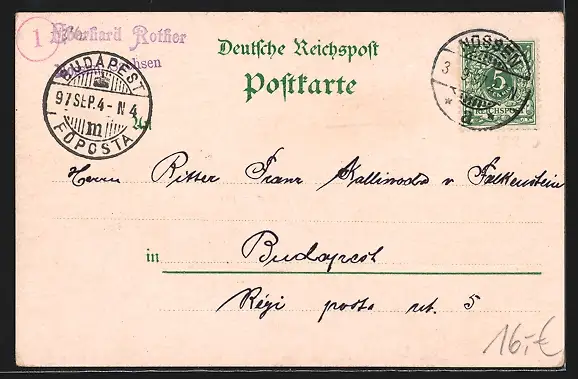 1
Eberhard Rother
Deutsche Reichspost
Postkarte
BUDAPEST
97 SEP. 4 - N 4
m
FŐPOSTA
NOSSEN
3
5
REICHSPOST
* d *
An
Herrn Ritter Franz Kalliwoda v Falkenstein
in Budapest
Régi posta ut. 5
16,-€